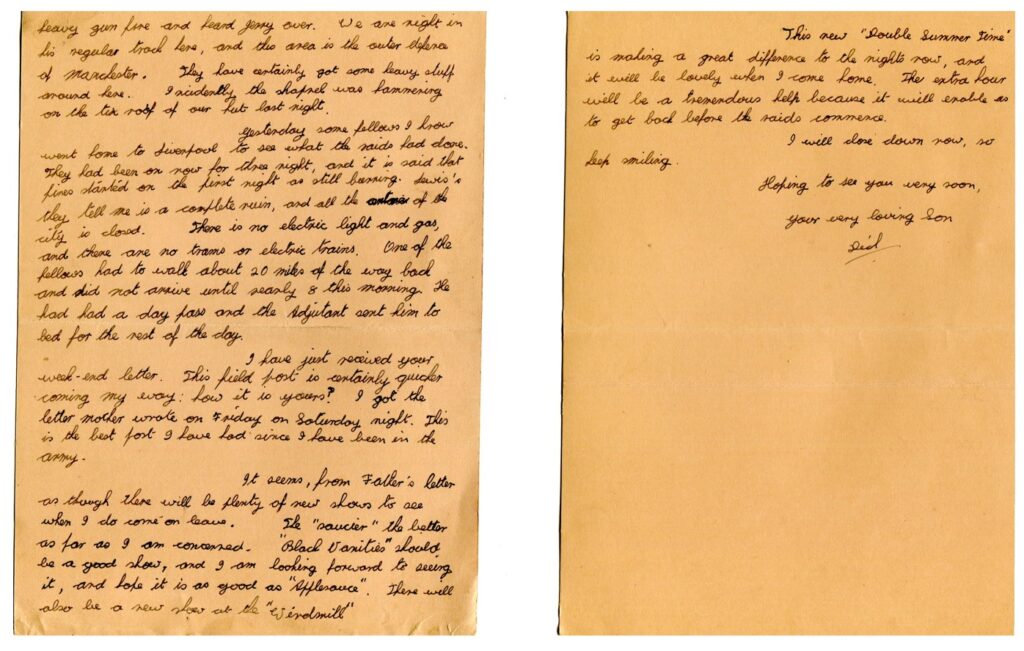 heavy gun fire and heard Jerry over. We are right in
his regular track here, and this area is the outer defence
of Manchester. They have certainly got some heavy stuff
around here. Incidently the shapnel was hammering
on the tin roof of our hut last night.
Yesterday some fellows I know
went home to Liverpool to see what the raids had done.
They had been on now for three night, and it is said that
fires started on the first night as still burning. Lewis's
they tell me is a complete ruin, and all the of the
city is closed. There is no electric light and gas,
and there are no trams or electric trains. One of the
fellows had to walk about 20 miles of the way back
and did not arrive until nearly 8 this morning. He
had had a day pass and the Adjutant sent him to
bed for the rest of the day.
I have just received your
week-end letter. This field post is certainly quicker
coming my way: how it is yours? I got the
letter mother wrote on Friday on Saturday night. This
is the best post I have had since I have been in the
army.
It seems, from Father's letter
as though there will be plenty of new shows to see
when I do come on leave. The "saucier" the better
as far as I am concerned. "Black Vanities" should
be a good show, and I am looking forward to seeing
it, and hope it is as good as "Applesauce". There will
also be a new show at the "Windmill"
This new "Double Summer Time"
is making a great difference to the nights now, and
it will be lovely when I come home. The extra hour
will be a tremendous help because it will enable us
to get back before the raids commence.
I will close down now, so
keep smiling.
Hoping to see you very soon,
your very loving Son